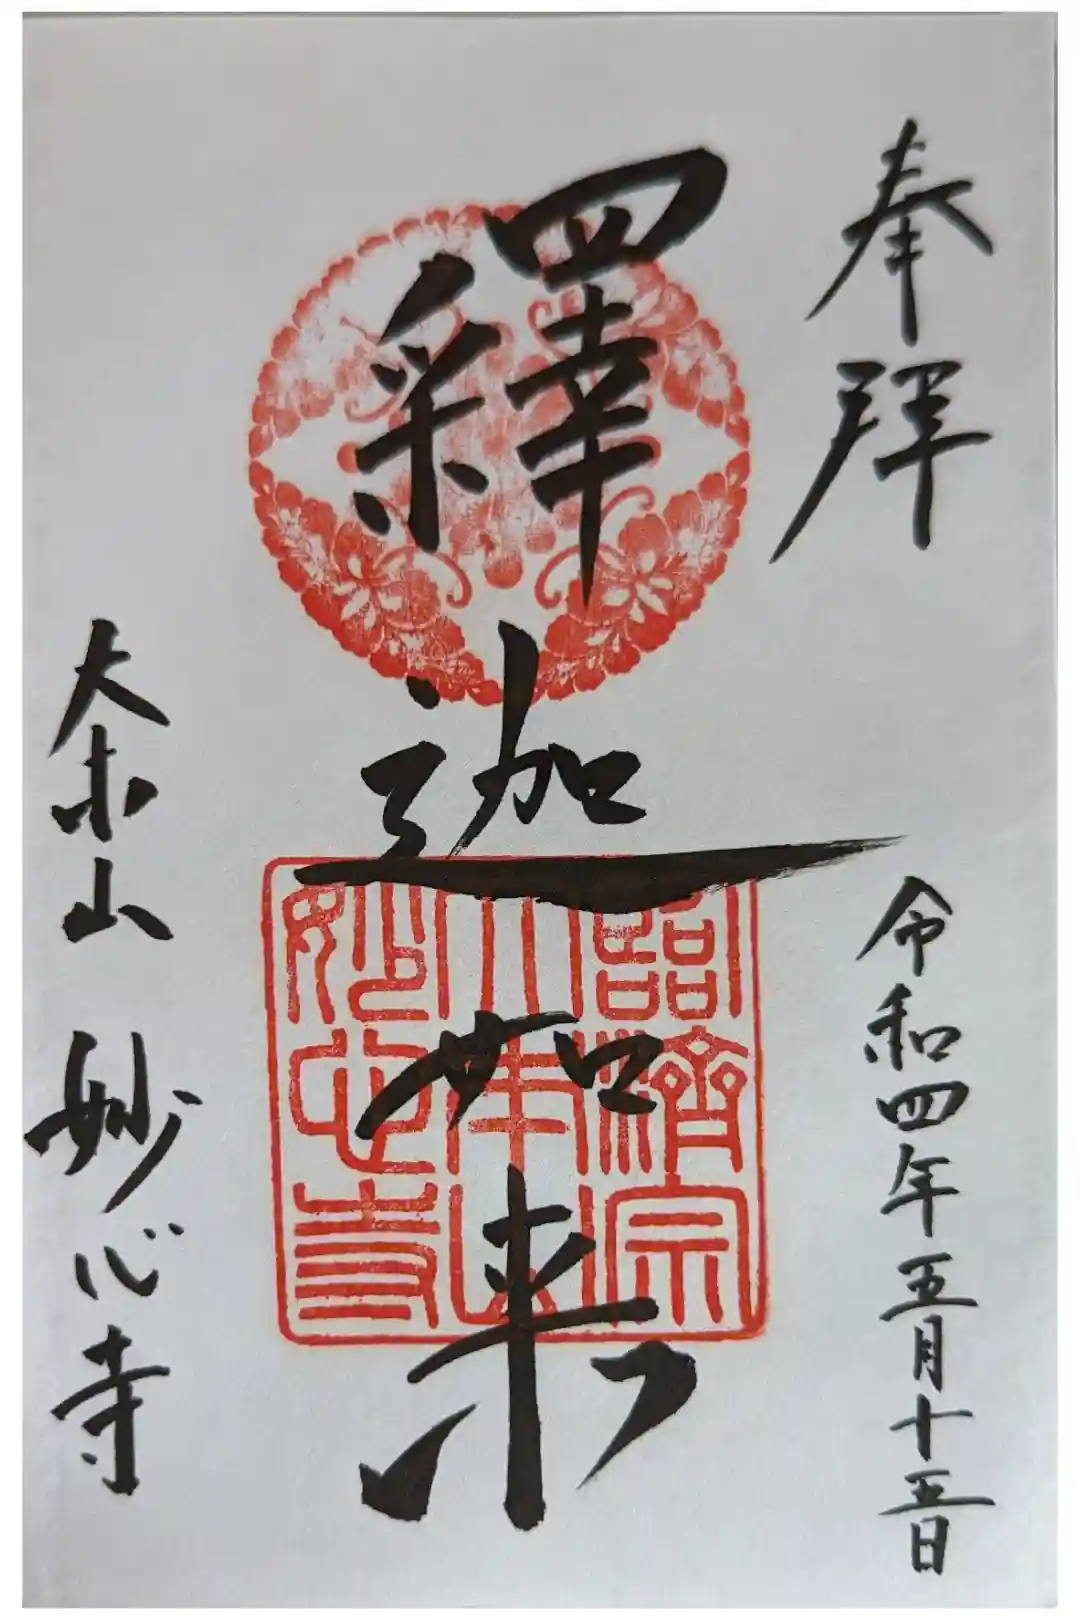 奉拝
令和四年五月十五日
釋迦如来
臨濟宗
大本山
妙心寺
大本山 妙心寺